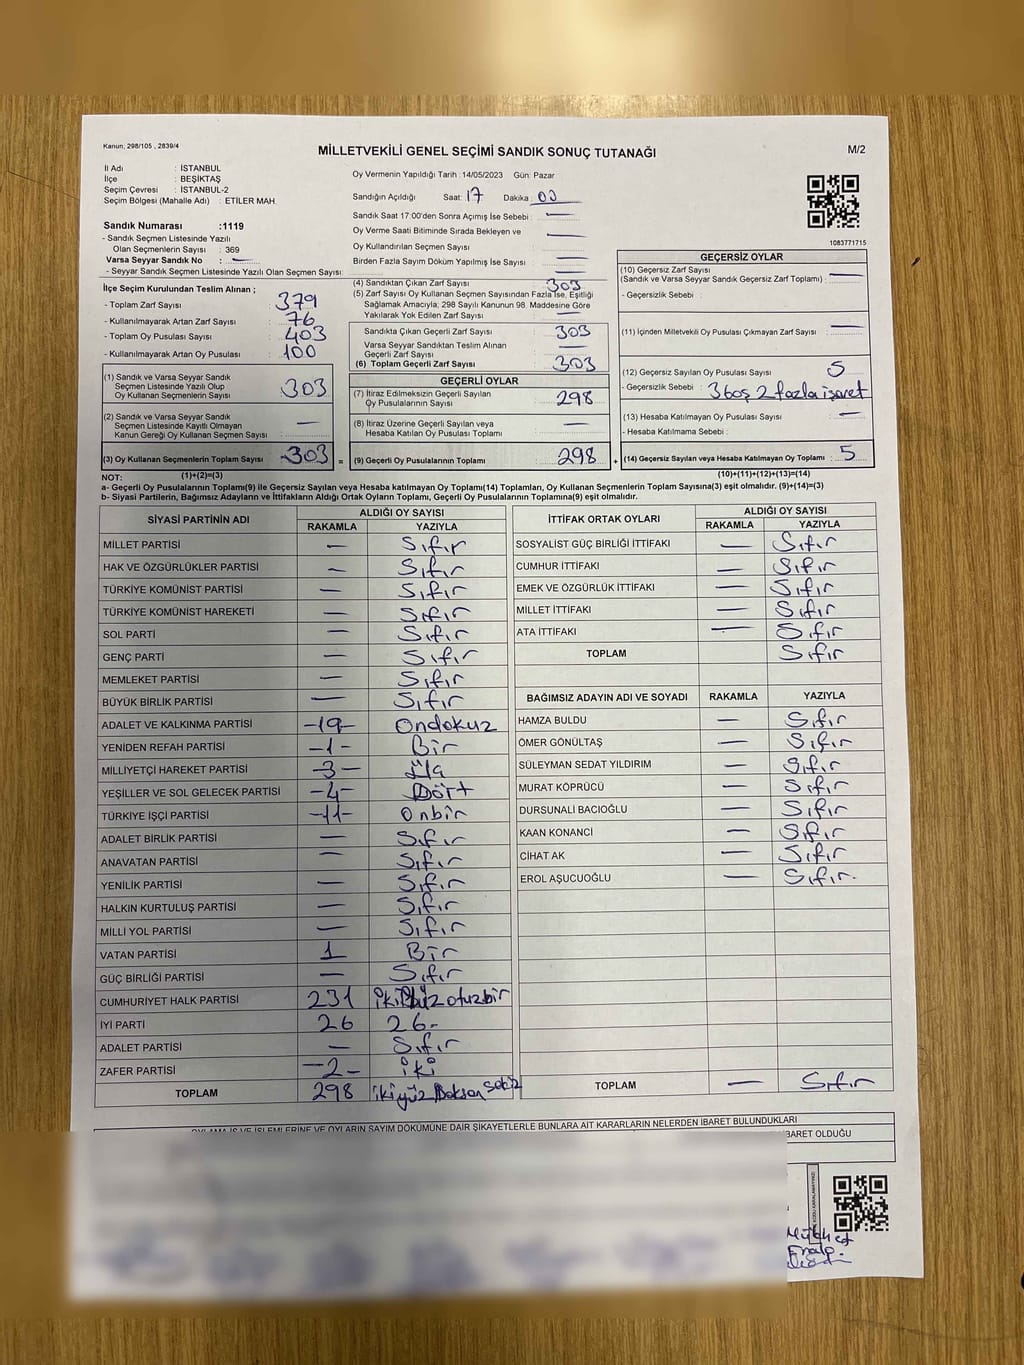 Kanun; 298/105 , 2839/4
MİLLETVEKİLİ GENEL SEÇİMİ SANDIK SONUÇ TUTANAĞI
M/2
İl Adı : İSTANBUL
İlçe : BEŞİKTAŞ
Seçim Çevresi : İSTANBUL-2
Seçim Bölgesi (Mahalle Adı) : ETİLER MAH.
Sandık Numarası :1119
- Sandık Seçmen Listesinde Yazılı
Olan Seçmenlerin Sayısı : 369
Varsa Seyyar Sandık No : —
- Seyyar Sandık Seçmen Listesinde Yazılı Olan Seçmen Sayısı:
Oy Vermenin Yapıldığı Tarih : 14/05/2023 Gün: Pazar
Sandığın Açıldığı Saat: 17 Dakika : 00
Sandık Saat 17:00'den Sonra Açımış İse Sebebi : —
Oy Verme Saati Bitiminde Sırada Bekleyen ve
Oy Kullandırılan Seçmen Sayısı : —
Birden Fazla Sayım Döküm Yapılmış İse Sayısı : —
1083771715
İlçe Seçim Kurulundan Teslim Alınan ;
- Toplam Zarf Sayısı : 379
- Kullanılmayarak Artan Zarf Sayısı : 76
- Toplam Oy Pusulası Sayısı : 403
- Kullanılmayarak Artan Oy Pusulası : 100
(1) Sandık ve Varsa Seyyar Sandık
Seçmen Listesinde Yazılı Olup
Oy Kullanan Seçmenlerin Sayısı : 303
(2) Sandık ve Varsa Seyyar Sandık
Seçmen Listesinde Kayıtlı Olmayan
Kanun Gereği Oy Kullanan Seçmen Sayısı : —
(3) Oy Kullanan Seçmenlerin Toplam Sayısı : 303 =
(4) Sandıktan Çıkan Zarf Sayısı : 303
(5) Zarf Sayısı Oy Kullanan Seçmen Sayısından Fazla İse, Eşitliği
Sağlamak Amacıyla; 298 Sayılı Kanunun 98. Maddesine Göre
Yakılarak Yok Edilen Zarf Sayısı : —
Sandıkta Çıkan Geçerli Zarf Sayısı : 303
Varsa Seyyar Sandıktan Teslim Alınan
Geçerli Zarf Sayısı : —
(6) Toplam Geçerli Zarf Sayısı : 303
GEÇERLİ OYLAR
(7) İtiraz Edilmeksizin Geçerli Sayılan
Oy Pusulalarının Sayısı : 298
(8) İtiraz Üzerine Geçerli Sayılan veya
Hesaba Katılan Oy Pusulası Toplamı : —
(9) Geçerli Oy Pusulalarının Toplamı : 298 +
GEÇERSİZ OYLAR
(10) Geçersiz Zarf Sayısı
(Sandık ve Varsa Seyyar Sandık Geçersiz Zarf Toplamı) : —
- Geçersizlik Sebebi :
(11) İçinden Milletvekili Oy Pusulası Çıkmayan Zarf Sayısı : —
(12) Geçersiz Sayılan Oy Pusulası Sayısı : 5
- Geçersizlik Sebebi : 3 boş 2 fazla işaret
(13) Hesaba Katılmayan Oy Pusulası Sayısı : —
- Hesaba Katılmama Sebebi :
(14) Geçersiz Sayılan veya Hesaba Katılmayan Oy Toplamı : 5
NOT: (1)+(2)=(3) (10)+(11)+(12)+(13)=(14)
a- Geçerli Oy Pusulalarının Toplamı(9) ile Geçersiz Sayılan veya Hesaba katılmayan Oy Toplamı(14) Toplamları, Oy Kullanan Seçmenlerin Toplam Sayısına(3) eşit olmalıdır. (9)+(14)=(3)
b- Siyasi Partilerin, Bağımsız Adayların ve İttifakların Aldığı Ortak Oyların Toplamı, Geçerli Oy Pusulalarının Toplamına(9) eşit olmalıdır.
SİYASİ PARTİNİN ADI ALDIĞI OY SAYISI
RAKAMLA YAZIYLA
MİLLET PARTİSİ — Sıfır
HAK VE ÖZGÜRLÜKLER PARTİSİ — Sıfır
TÜRKİYE KOMÜNİST PARTİSİ — Sıfır
TÜRKİYE KOMÜNİST HAREKETİ — Sıfır
SOL PARTİ — Sıfır
GENÇ PARTİ — Sıfır
MEMLEKET PARTİSİ — Sıfır
BÜYÜK BİRLİK PARTİSİ — Sıfır
ADALET VE KALKINMA PARTİSİ -19- Ondokuz
YENİDEN REFAH PARTİSİ -1- Bir
MİLLİYETÇİ HAREKET PARTİSİ -3-
YEŞİLLER VE SOL GELECEK PARTİSİ -4- Dört
TÜRKİYE İŞÇİ PARTİSİ -11- Onbir
ADALET BİRLİK PARTİSİ — Sıfır
ANAVATAN PARTİSİ — Sıfır
YENİLİK PARTİSİ — Sıfır
HALKIN KURTULUŞ PARTİSİ — Sıfır
MİLLİ YOL PARTİSİ — Sıfır
VATAN PARTİSİ 1 Bir
GÜÇ BİRLİĞİ PARTİSİ — Sıfır
CUMHURİYET HALK PARTİSİ 231 ikiyüz otuzbir
İYİ PARTİ 26 26-
ADALET PARTİSİ — Sıfır
ZAFER PARTİSİ -2- iki
TOPLAM 298 ikiyüz Doksan Sekiz
İTTİFAK ORTAK OYLARI ALDIĞI OY SAYISI
RAKAMLA YAZIYLA
SOSYALİST GÜÇ BİRLİĞİ İTTİFAKI — Sıfır
CUMHUR İTTİFAKI — Sıfır
EMEK VE ÖZGÜRLÜK İTTİFAKI — Sıfır
MİLLET İTTİFAKI — Sıfır
ATA İTTİFAKI — Sıfır
TOPLAM Sıfır
BAĞIMSIZ ADAYIN ADI VE SOYADI RAKAMLA YAZIYLA
HAMZA BULDU — Sıfır
ÖMER GÖNÜLTAŞ — Sıfır
SÜLEYMAN SEDAT YILDIRIM — Sıfır
MURAT KÖPRÜCÜ — Sıfır
DURSUNALİ BACIOĞLU — Sıfır
KAAN KONANCİ — Sıfır
CİHAT AK — Sıfır
EROL AŞUCUOĞLU — Sıfır.
TOPLAM — Sıfır
OYLAMA İŞ VE İŞLEMLERİNE VE OYLARIN SAYIM DÖKÜMÜNE DAİR ŞİKAYETLERLE BUNLARA AİT KARARLARIN NELERDEN İBARET BULUNDUKLARI
İBARET OLDUĞU